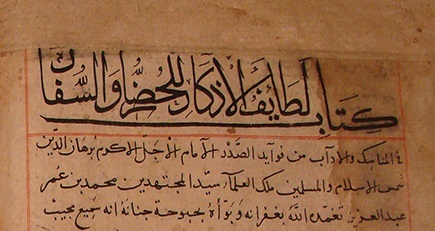 كتاب لطايف الاذكار للحضر والسفار
في المناسك والاداب من فوايد الصدر الامام الاجل الاكرم برهان الدين
شمس الاسلام والمسلمين ملك العلماء سيد المجتهدين محمد بن عمر
عبد العزيز تغمده الله بغفرانه وبوأه بحبوحة جنانه انه سميع مجيب